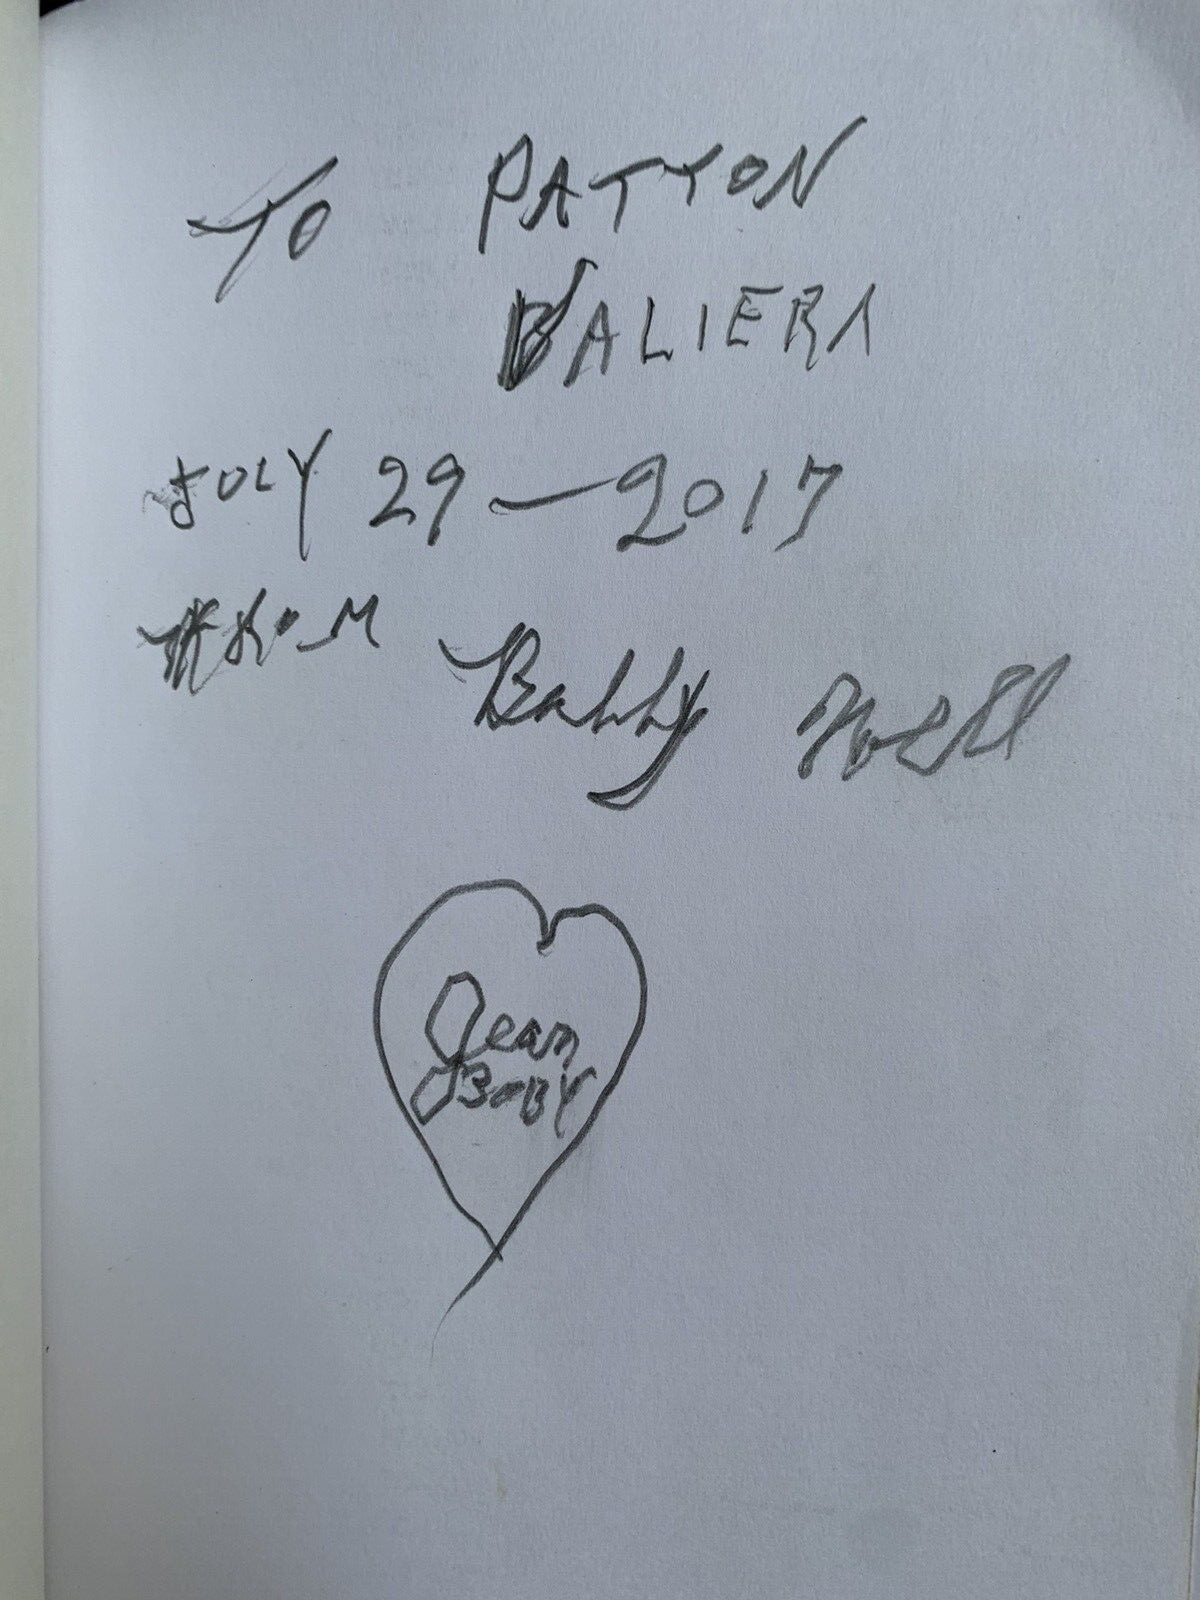 TO PATTON
BALIERA
JULY 29—2017
FROM Bobby
Jean
BOBY